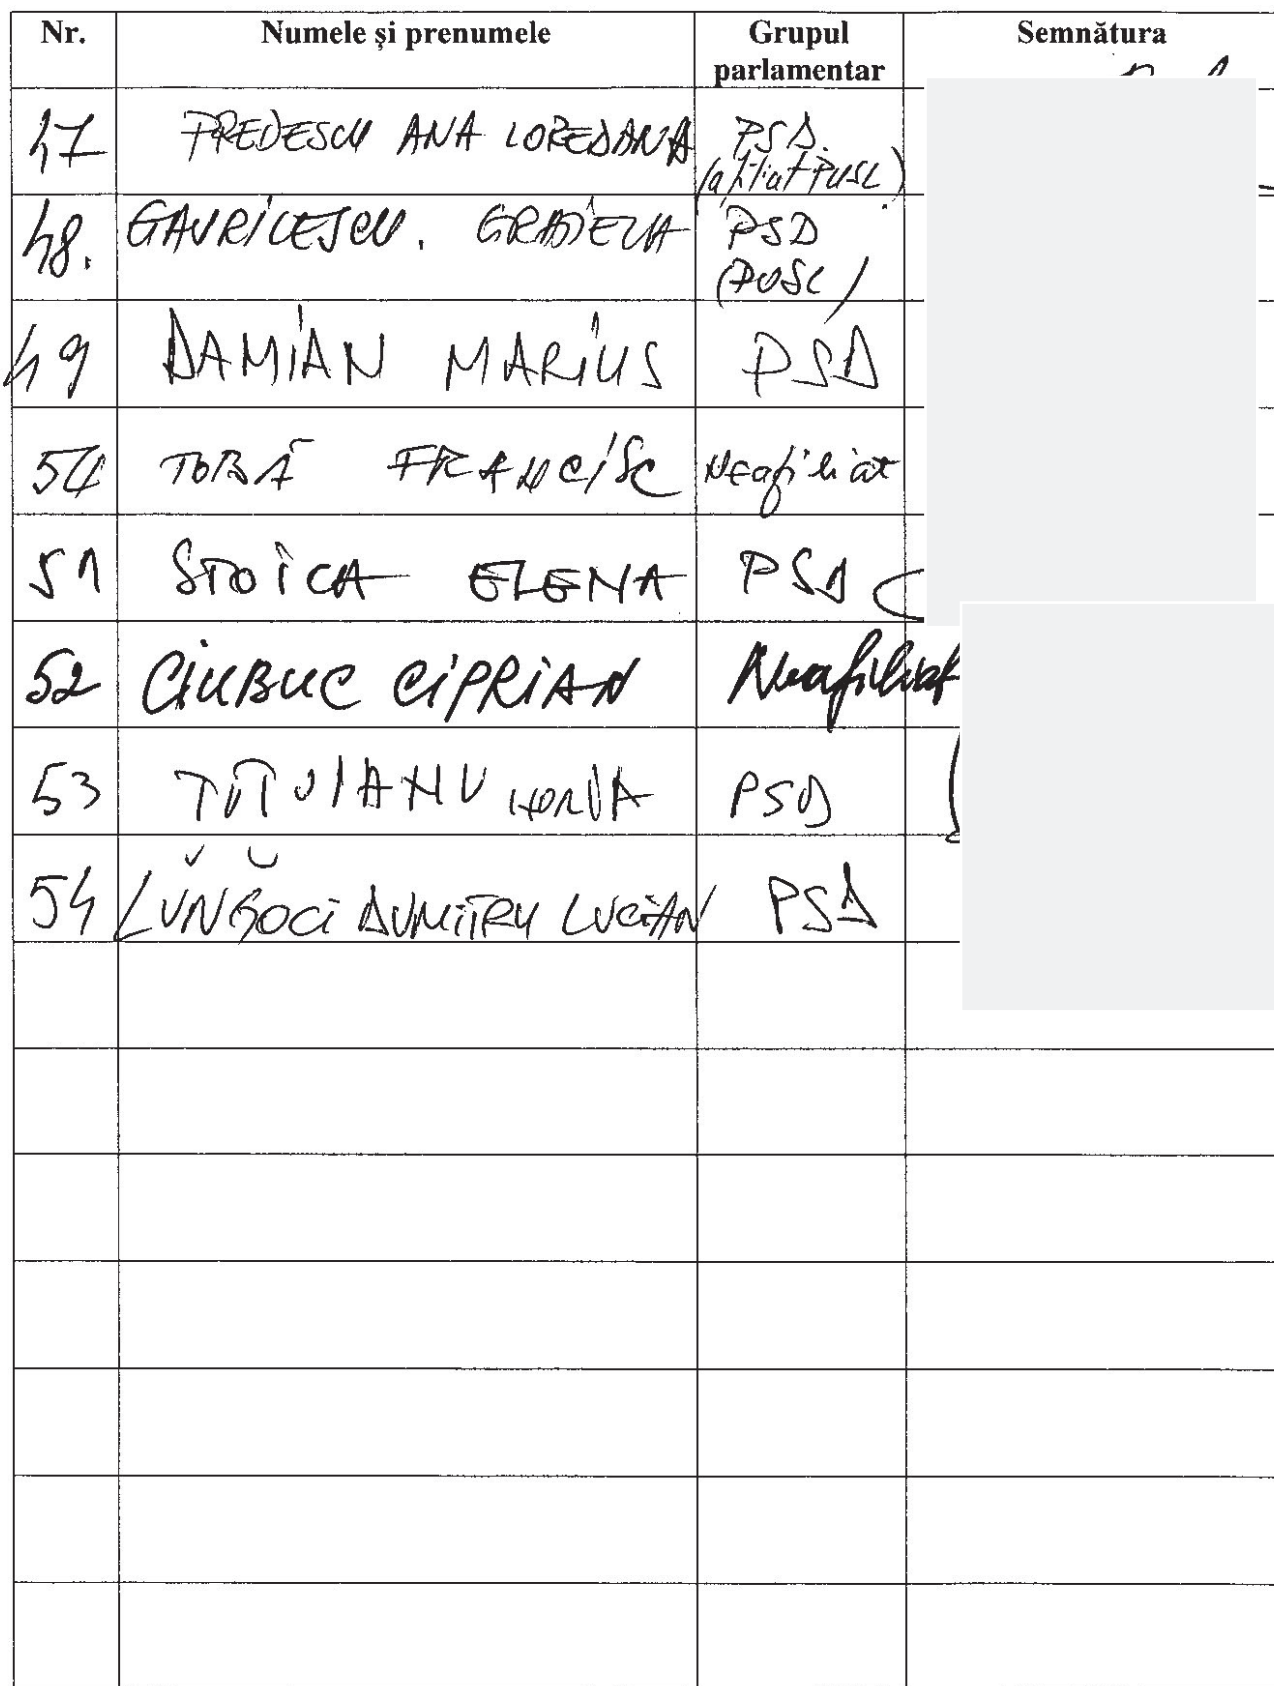 Nr. Numele și prenumele Grupul parlamentar Semnătura
47 PREDESCU ANA LOREDANA PSD (afiliat PUSL)
48. GAVRILESCU. GRAȚIELA PSD (PUSL)
49 DAMIAN MARIUS PSD
50 TOBĂ FRANCISC Neafiliat
51 STOICA ELENA PSD
52 CIUBUC CIPRIAN Neafiliat
53 PSD
54 LUNGOCI DUMITRU LUCIAN PSD